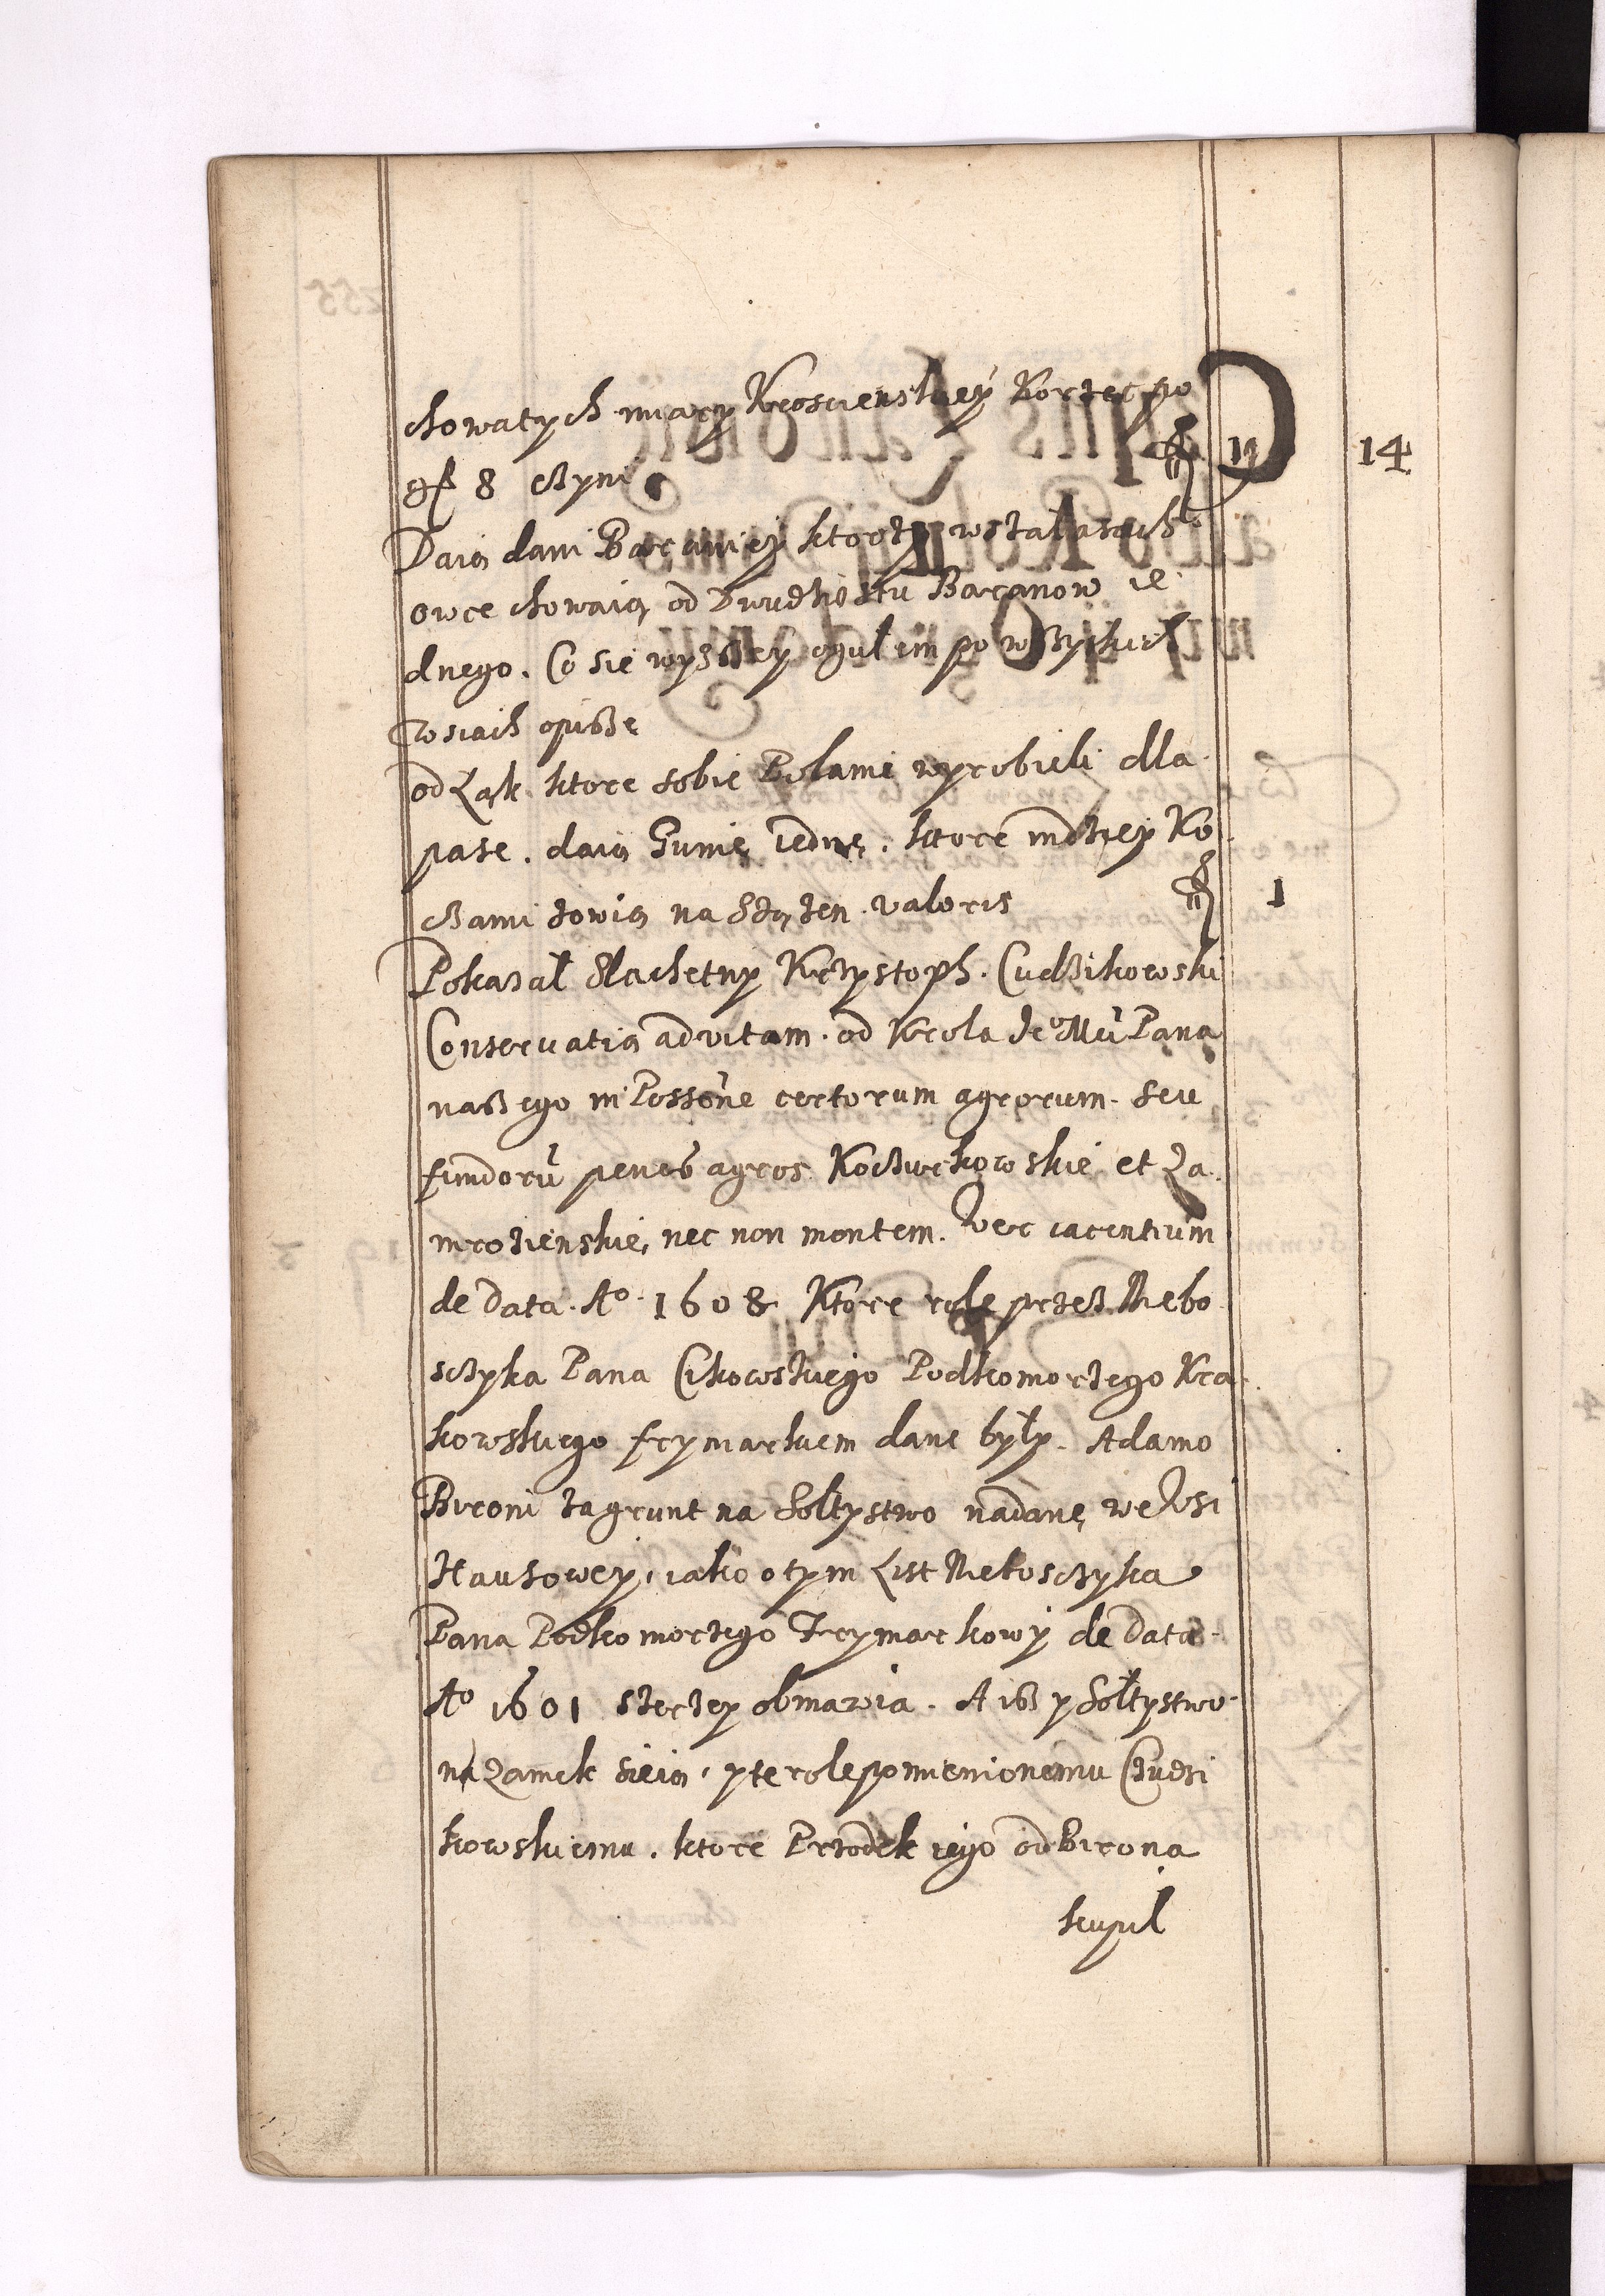 chowatych miary Kroscienskiey Korzec po
gr 8 czyni fl 11 14
Daią dani Baraniey ktorzy w szałasach
owce chowaią od Dwudziestu Baranow ie
dnego. Co się wyzszey ogułem po wszytkich
wsiach opisze
od Łąk ktore sobie Polami wyrobieli dla
pase. daią Gunię iednę. ktore indziey Ko
czami zowią na Stązen valoris fl 1
Pokazał Slachetny Krzystoph. Cudzikowski
Conseruatią ad vitam. od Krola Jeo Mci Pana
naszego in Possne certorum agrorum. seu
fundorū penes agros Koczurkowskie et Za
mrozienskie, nec non montem. Wer iacentium
de data. Ao 1608 Ktore role przez Niebo
sczyka Pana Cikowskiego Podkomorzego Kra
kowskiego frymarkiem dane były. Adamo
Bironi za grunt na Sołtystwo nadanę we Wsi
Hauzowey, iako o tym List Nieboszczyka
Pana Podkomorzego Frymarkowy de data
Ao 1601 szerzey obmawia. A isz y Sołtystwo
na Zamek sieią, y te role pomienionemu Czudzi
kowskiemu. ktore Przodek iego od Birona
kupił